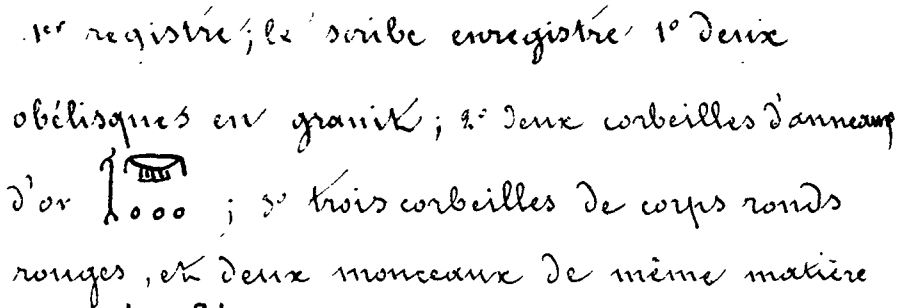 1er registre; le scribe enregistre 1º deux
obélisques en granit; 2º deux corbeilles d'anneaux
d'or ; 3º trois corbeilles de corps ronds
rouges, et deux monceaux de même matière